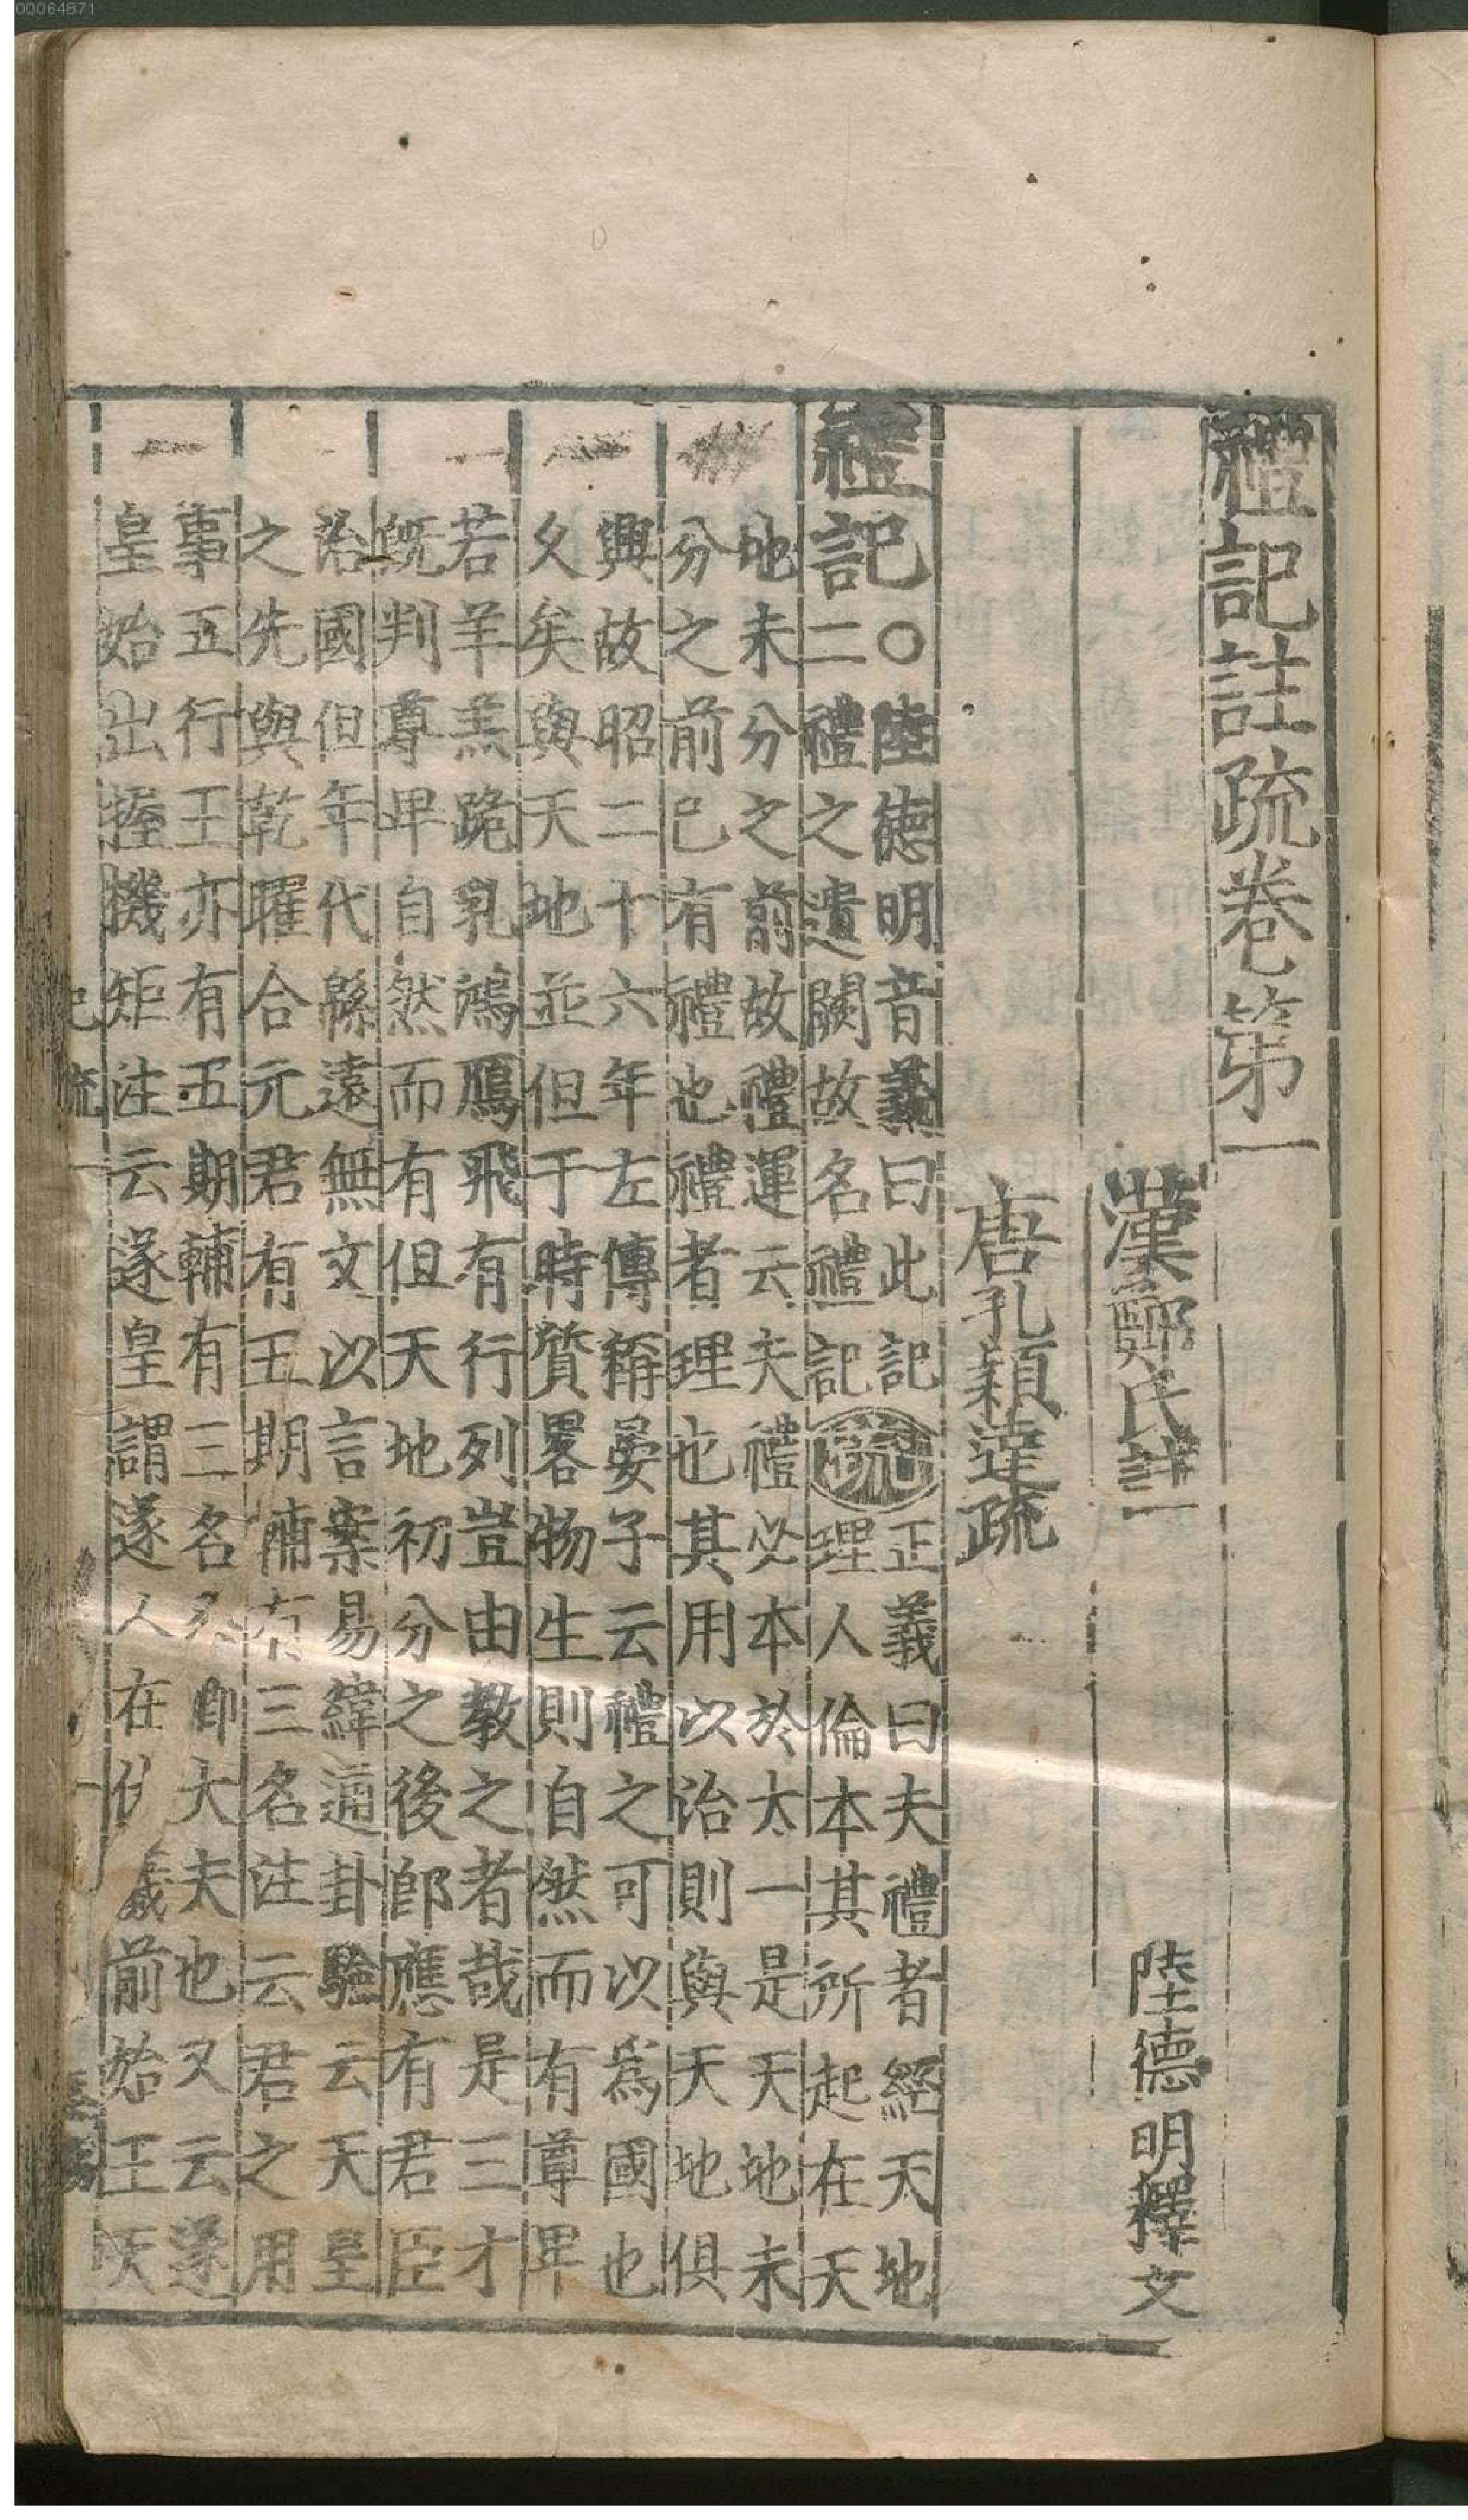 00064871
禮記註疏卷第一
漢鄭氏註
陸德明釋文
唐孔穎達疏
禮記
○陸德明音義曰此記
二禮之遺闕故名禮記
疏
正義曰夫禮者經天地
理人倫本其所起在天
地未分之前故禮運云夫禮必本於大一是天地未
分之前已有禮也禮者理也其用以治則與天地俱
興故昭二十六年左傳稱晏子云禮之可以爲國也
久矣與天地並但于時質畧物生則自然而有尊卑
若羊羔跪乳鴻鴈飛有行列豈由敎之者哉是三才
旣判尊卑自然而有但天地初分之後卽應有君臣
治國但年代緜遠無文以言案易緯通卦驗云天皇
之先與乾曜合元君有五期輔有三名注云君之用
事五行王亦有五期輔有三名公卿大夫也又云遂
皇始出握機矩注云遂皇謂遂人在伏羲前始王天